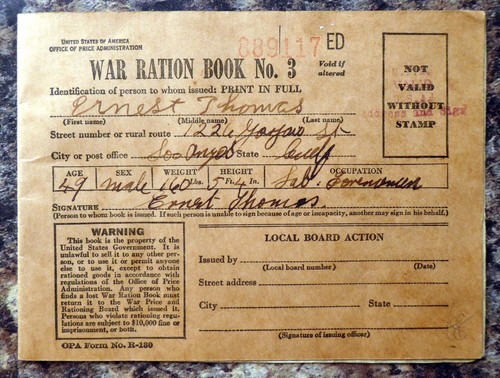 UNITED STATES OF AMERICA
OFFICE OF PRICE ADMINISTRATION
889117 ED
Void if
altered
WAR RATION BOOK No. 3
Identification of person to whom issued: PRINT IN FULL
Ernest Thomas
(First name) (Middle name) (Last name)
Street number or rural route 1226 St
City or post office Los Angeles State Calif
AGE SEX WEIGHT HEIGHT OCCUPATION
49 male 160 Lbs. 5 Ft. 4 In.
SIGNATURE Ernest Thomas.
(Person to whom book is issued. If such person is unable to sign because of age or incapacity, another may sign in his behalf.)
NOT
VALID
WITHOUT
STAMP
WARNING
This book is the property of the
United States Government. It is
unlawful to sell it to any other per-
son, or to use it or permit anyone
else to use it, except to obtain
rationed goods in accordance with
regulations of the Office of Price
Administration. Any person who
finds a lost War Ration Book must
return it to the War Price and
Rationing Board which issued it.
Persons who violate rationing regu-
lations are subject to $10,000 fine or
imprisonment, or both.
LOCAL BOARD ACTION
Issued by
(Local board number) (Date)
Street address
City State
(Signature of issuing officer)
OPA Form No. R-130